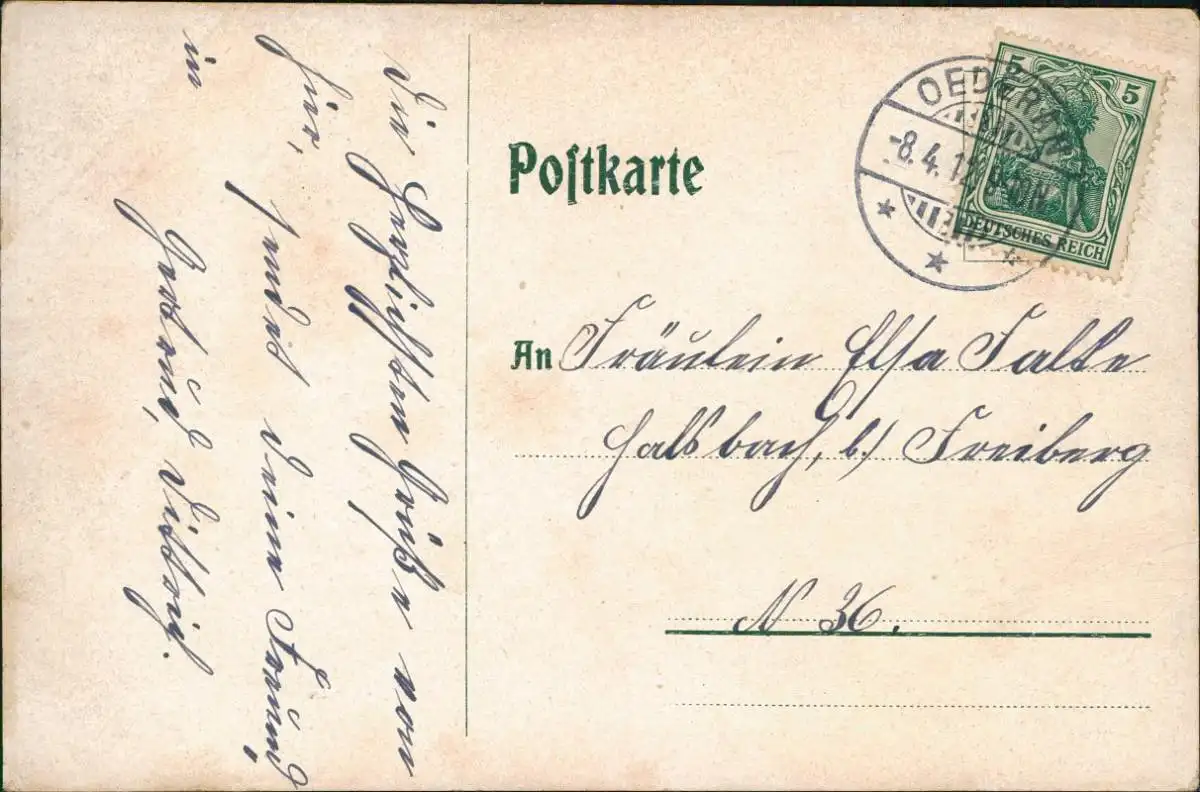 Die herzlichsten Grüße von
hier, sendet deine Freundin
Postkarte
OEDERAN
-8.4.12
5
5
DEUTSCHES REICH
An Fräulein Elsa
Halsbach, b/ Freiberg
N 36.